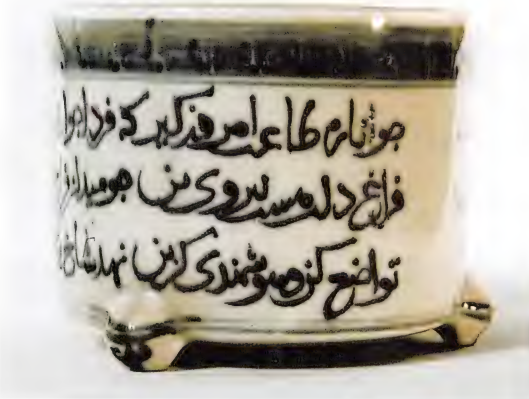 جوانا ره طاعت امروز کیر که فردا جوا
فراغ دلت هست نیروی تن چو میدان فر
تواضع کند هوشمندی کزین نهد شاخ